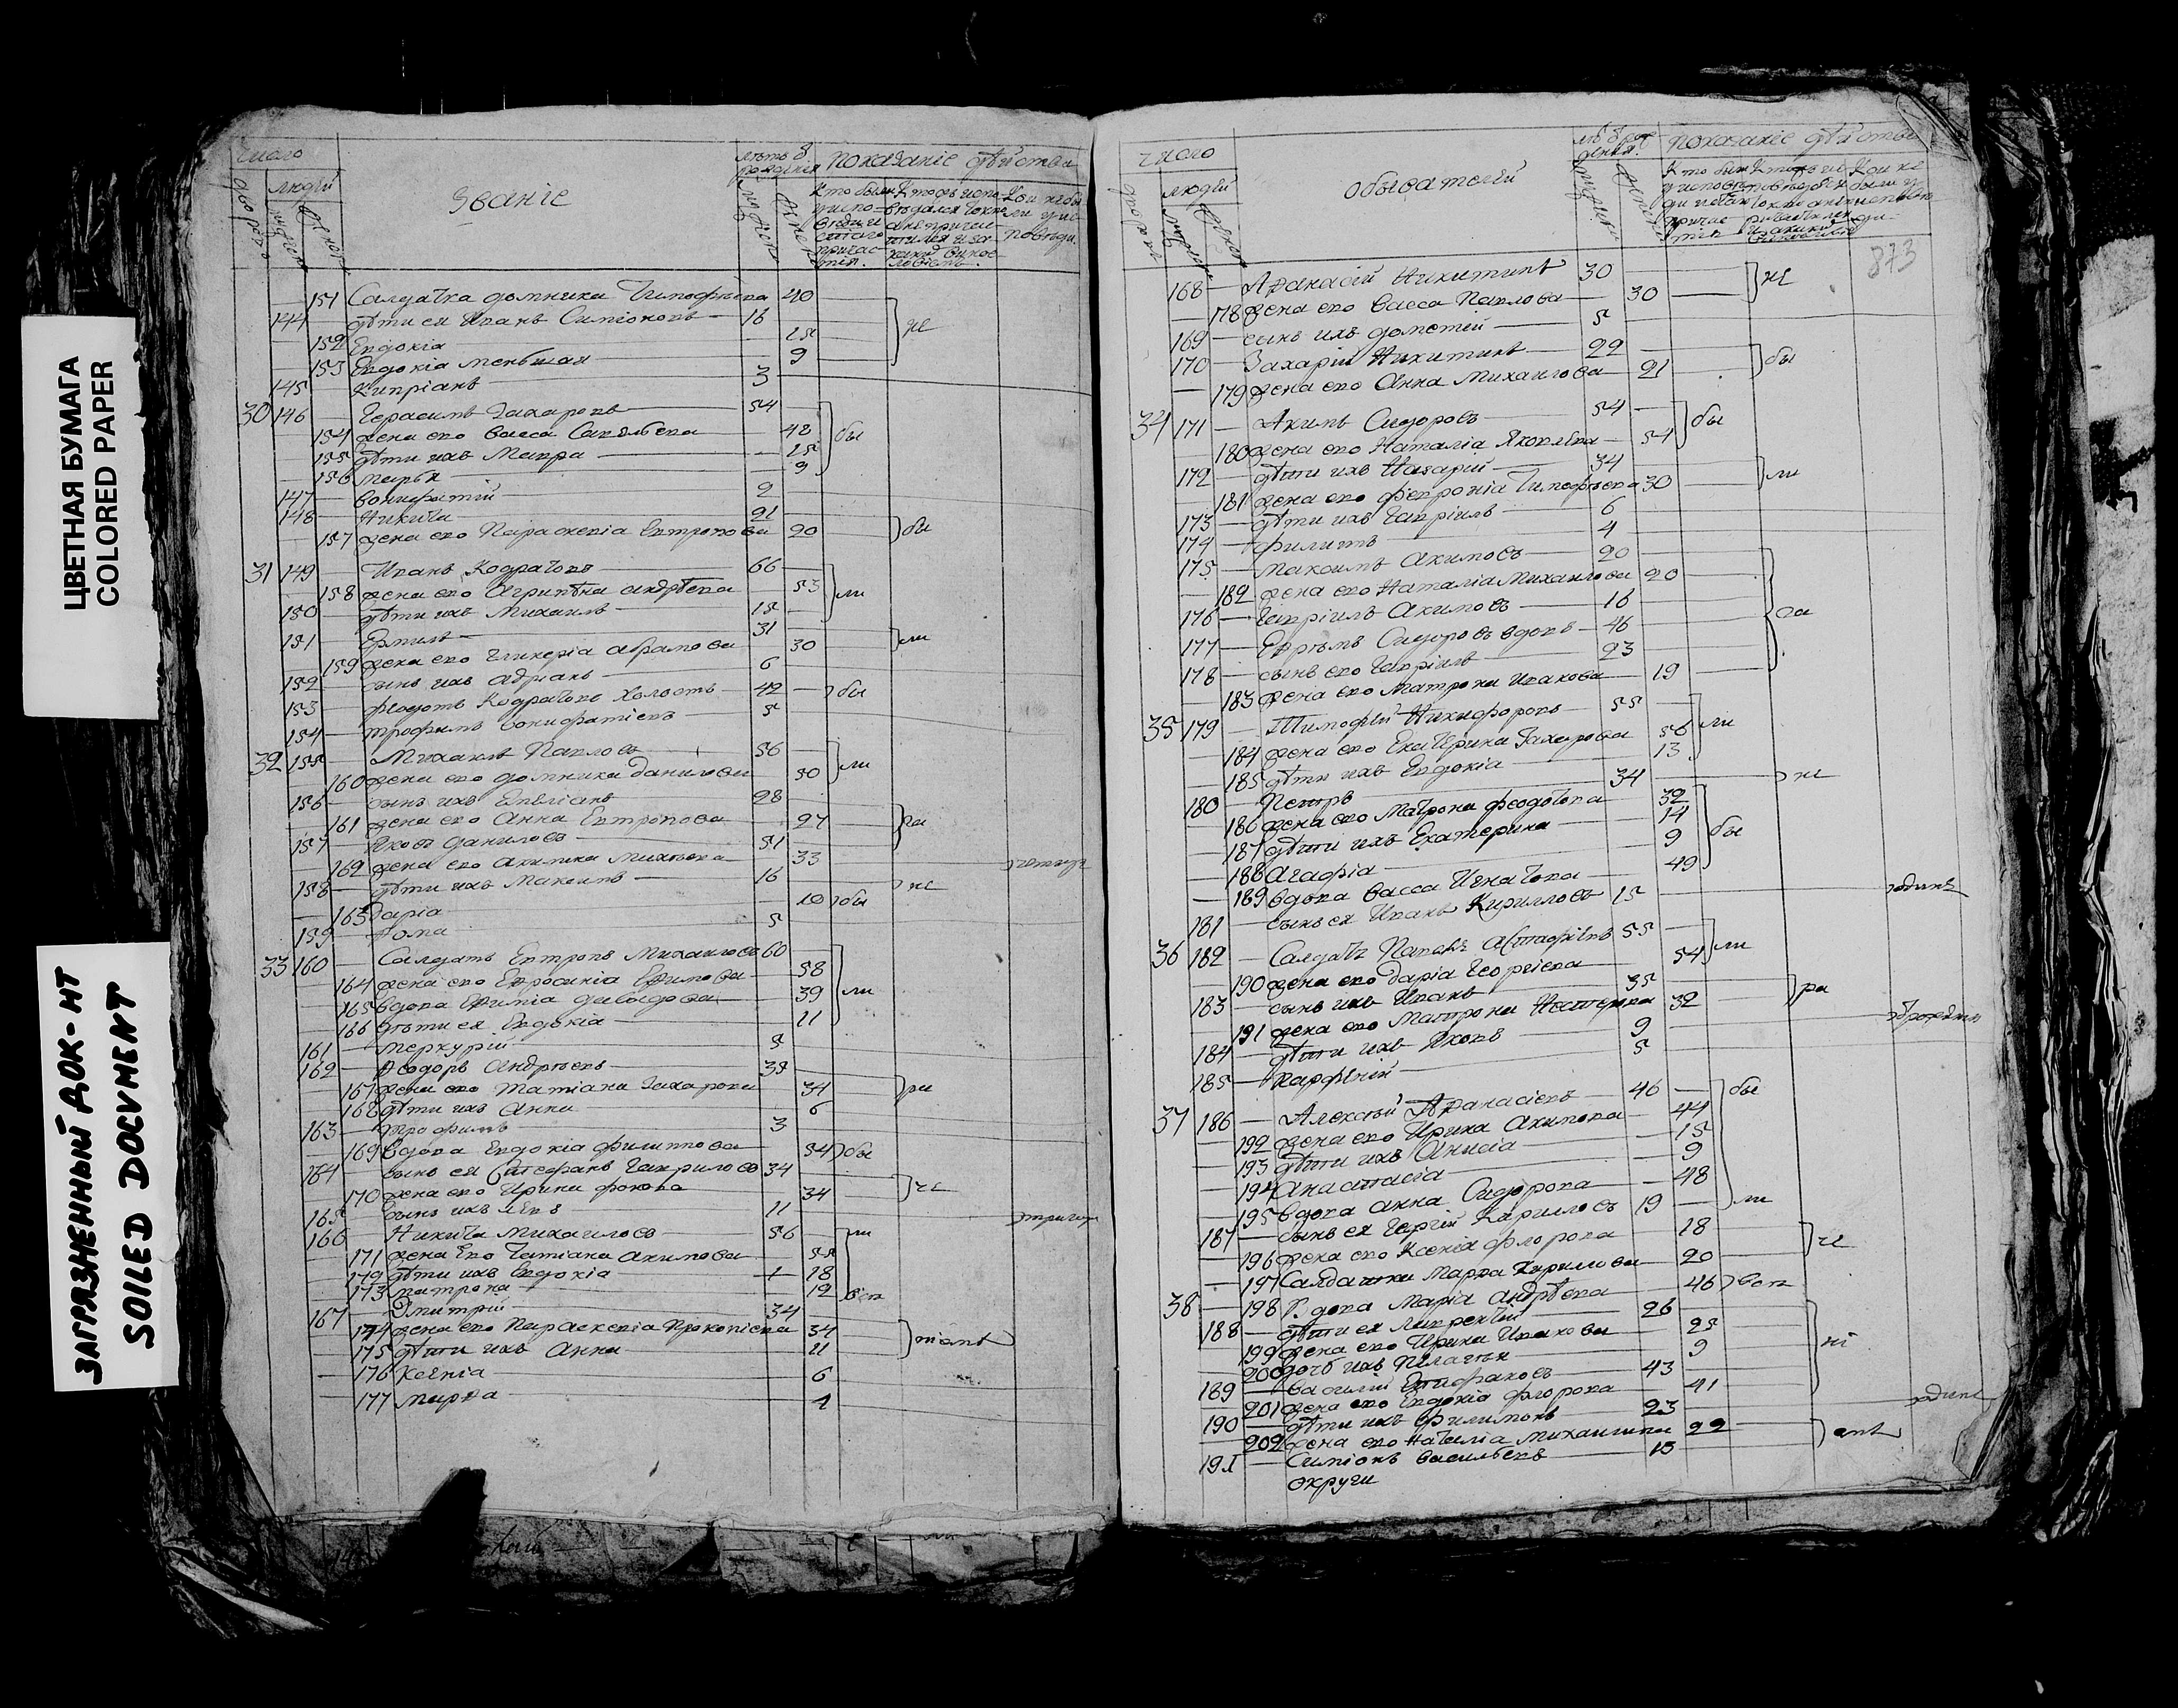 ЦВЕТНАЯ БУМАГА
COLORED PAPER
ЗАГРЯЗНЕННЫЙ ДОК-НТ
SOILED DOCUMENT
число
людей
Званіе
показаніе действа
151 Салдатка домника Тимофѣева 40
144 дѣти ея Иванъ Симіоновъ 16
152 Евдокіа 15
153 Евдокіа меньшая 9
145 Кипріанъ 3
30 146 Герасимъ Захаровъ 54
154 жена его Васса Савельева 42
155 дѣти ихъ Мавра 15
156 марья 9
147 Вонифатій 2
148 Никита 21
157 жена его Параскевіа Евтропова 20
31 149 Иванъ Кодратовъ 66
158 жена его Агрипѣна андрѣева 53
150 дѣти ихъ Михаилъ 15
151 Ермилъ 31
159 жена его Гликеріа абрамова 30
152 сынъ ихъ адріанъ 6
153 федотъ Кодратовъ холостъ 42
154 трофимъ Вонифатіевъ 5
32 155 Михаилъ Павловъ 56
160 жена его домника данилова 50
156 сынъ ихъ Емеліанъ 28
161 жена его Анна Евтропова 27
157 Яковъ даниловъ 51
162 жена его акилина Михѣева 33
158 дѣти ихъ Максимъ 16
163 дарія 10
159 Фома 5
33 160 Салдатъ Евтропъ Михаиловъ 60
164 жена его Евросиніа Ефимова 58
165 вдова Ефиміа давыдова 39
166 дѣти ея Евдокіа 11
161 меркурій 5
162 Феодоръ Андрѣевъ 39
167 жена его Татіана Захарова 34
168 дѣти ихъ Анна 6
163 трофимъ 3
169 вдова Евдокіа филиппова 54 бы
164 сынъ ея Стефанъ Гаврилов 34
170 жена его Ирина фокова 34
165 сынъ ихъ левъ 11
166 Никита Михаиловъ 56
171 жена его Татіана акимова 55
172 дѣти ихъ Евдокіа 18
173 матрона 12
167 Дмитрій 34
174 жена его Параскевіа Прокопіева 34
175 дѣти ихъ Анна 11
176 Ксеніа 6
177 марѳа 1
число
людей
обывателей
показаніе действа
873
168 Афанасій Никитинъ 30
178 жена его Васса Павлова 30
169 сынъ ихъ дометій 5
170 Захарій Никитинъ 22
179 жена его Анна Михаилова 21
34 171 Акимъ Сидоровъ 54
180 жена его Наталіа Яковлева 54
172 дѣти ихъ Назарий 34
181 жена его февроніа Тимофѣева 30
173 дѣти ихъ Гавріилъ 6
174 филипъ 4
175 максимъ Акимовъ 20
182 жена его Наталіа Михаилова 20
176 Гавріилъ Акимовъ 16
177 Ефрѣмъ Сидоровъ вдовъ 46
178 сынъ его Гавріилъ 23
183 жена его Матрона Иванова 19
35 179 Тимофѣй Никифоровъ 55
184 жена его Екатѣрина Захарова 56
185 дѣти ихъ Евдокіа 13
180 Петръ 34
186 жена его Матрона феодотова 32
187 дѣти ихъ Екатерина 14
188 Агафіа 9
189 вдова Васса Игнатова 49
181 сынъ ея Иванъ Кирилловъ 15
36 182 Салдатъ Павелъ астафіевъ 55
190 жена его даріа Георгіева 54
183 сынъ ихъ Иванъ 35
191 жена его Матрона Нестерова 32
184 дѣти ихъ Яковъ 9
185 парфеній 5
37 186 Алексѣй Афанасіевъ 46
192 жена его Ирина Акимова 44
193 дѣти ихъ Анисіа 15
194 Анастасіа 9
195 вдова анна Сидорова 48
187 сынъ ея Георгій Кириловъ 19
196 жена его Ксеніа флорова 18
197 Салдатка Марѳа Кирилова 20
38 198 Вдова Маріа андрѣева 46
188 дѣти ея лаврентій 26
199 жена его Ирина Иванова 25
200 дочь ихъ Пелагѣя 9
189 Василій Епифановъ 43
201 жена его Евдокіа флорова 41
190 дѣти ихъ филимонъ 23
202 жена его Наталіа Михаилова 22
191 Симіонъ Васильевъ 15
округи